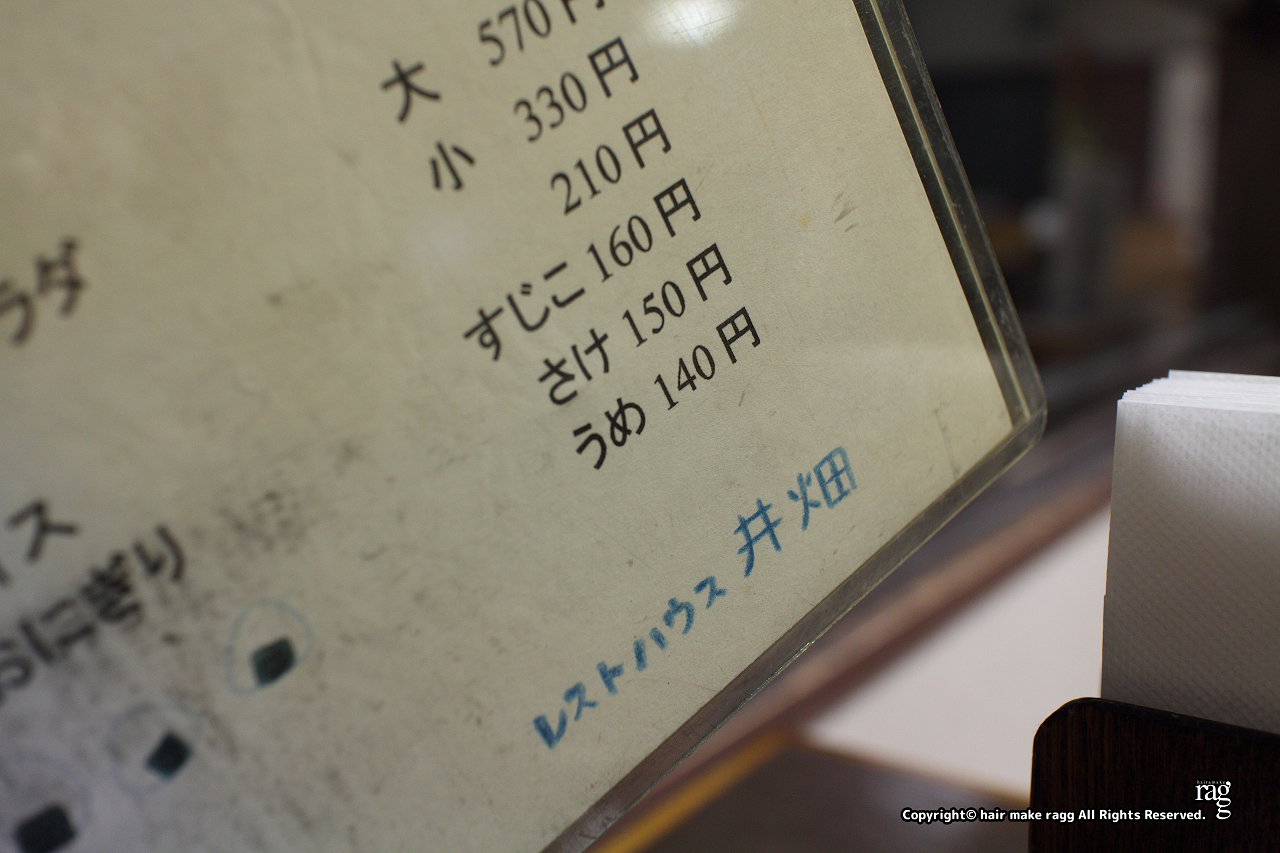 大 570円
小 330円
ラダ
210円
すじこ 160円
さけ 150円
うめ 140円
イス
おにぎり
レストハウス 井畑
rag
Copyright© hair make ragg All Rights Reserved.